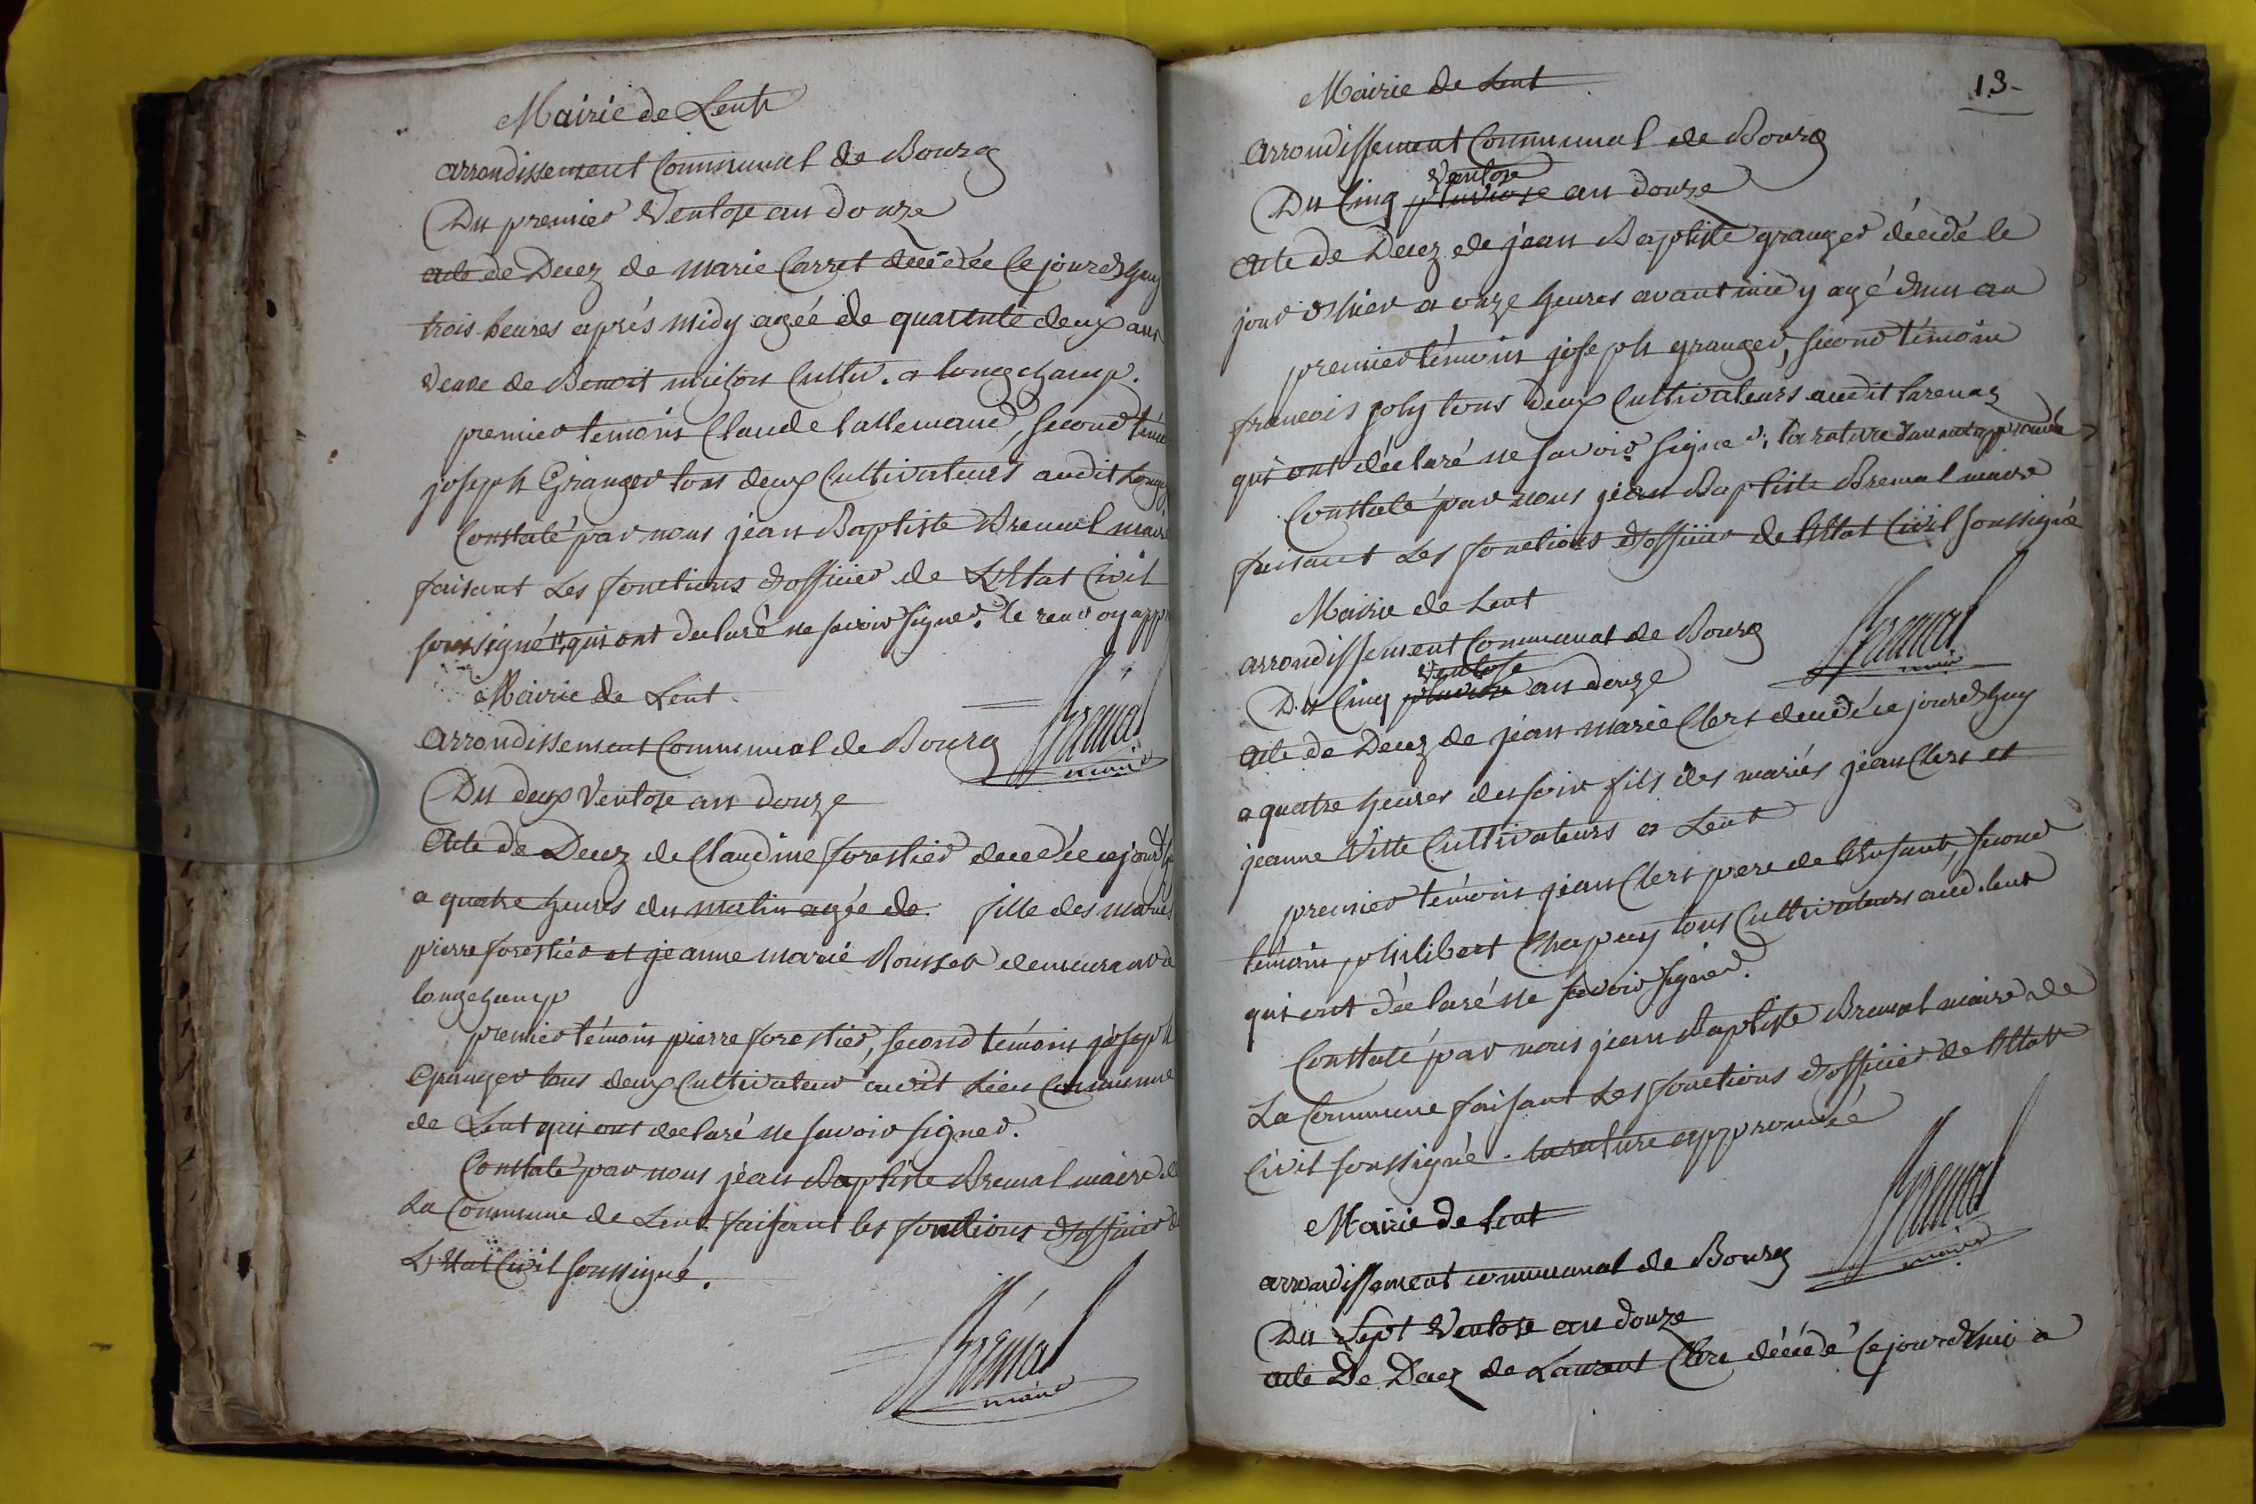 Mairie de Lent
arrondissement Communal de Bourg
Du premier Ventose an douze
acte de Decez de marie Carret décédée Ce jourd'huy
trois heures aprés midy agée de quarente deux ans
veuve de Benoit Cultiv. a longchamp.
premier temoin Claude lallemand, second témoin
joseph Granger tous deux Cultivateurs audit
Constaté par nous jean Baptiste Bremal maire
faisant Les fonctions d'officier de L'Etat Civil
soussigné ", qui ont declaré ne savoir signer. le renvoy
Mairie de Lent
arrondissement Communal de Bourg
Bremal
maire
Du deux Ventose an douze
Acte de Decez de Claudine forestier decedée ce jourd'huy
a quatre heures du matin agée de fille des mariés
pierre forestier et jeanne marie Rousset demeurant a
longchamp
premier témoin pierre forestier, second témoin joseph
Granger tous deux Cultivateur audit Lieu Commune
de Lent qui ont declaré ne savoir signer.
Constaté par nous jean Baptiste Bremal maire de
La Commune de Lent faisant les fonctions d'officier de
L'Etat Civil soussigné.
Brémal
maire
13
Mairie de Lent
arrondissement Communal de Bourg
Ventose
Du Cinq pluviose an douze
Acte de Decez de jean Baptiste granger décédé le
jour d'hier a onze heures avant midy agé d'un an
premier témoin joseph granger, second témoin
francois joly tous deux Cultivateurs audit
qui ont déclaré ne savoir signer. la rature d'un mot approuvée
Constaté par nous jean Baptiste Bremal maire
faisant Les fonctions d'officier de l'Etat Civil soussigné
Mairie de Lent
arrondissement Communal de Bourg
Bremal
maire
Ventose
Du Cinq pluviose an douze
Acte de Decez de jean marie Clert decedé ce jourd'huy
a quatre heures du soir fils des mariés jean Clert et
jeanne Vitte Cultivateurs a Lent
premier témoin jean Clert pere de l'Enfant, second
témoin philibert Chapuy tous Cultivateurs aud. lent
qui ont déclaré ne savoir signer.
Constaté par nous jean Baptiste Bremal maire de
La Commune faisant Les fonctions d'officier de l'Etat
Civil soussigné. la rature approuvée
Bremal
maire
Mairie de Lent
arrondissement communal de Bourg
Du Sept Ventose an douze
acte De Decez de Laurent Clere décédé Cejourd'hui a